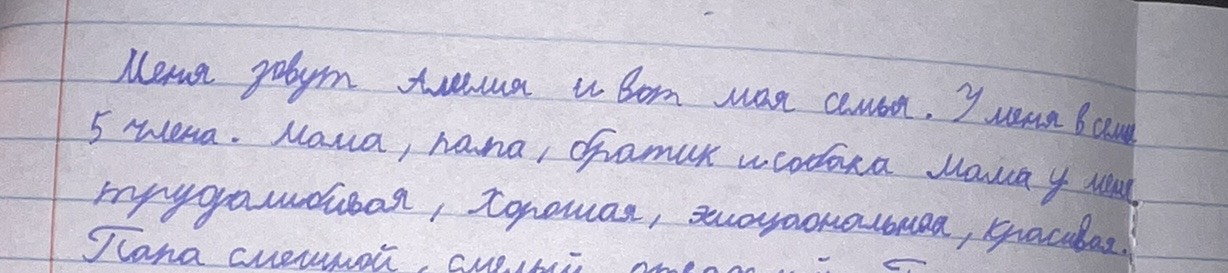 Меня зовут Амелия и вот моя семья. У меня в семье
5 члена. Мама, папа, братик и собака Мама у меня
трудалюбивая, хорошая, эмоцаональная, красивая.
Папа смешной, смелый,